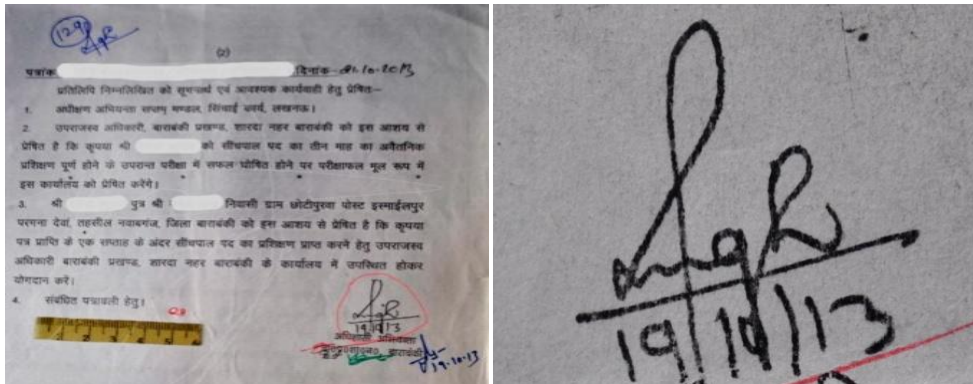 129
(2)
पत्रांक दिनांक- .10.2013
प्रतिलिपि निम्नलिखित को सूचनार्थ एवं आवश्यक कार्यवाही हेतु प्रेषित:-
1. अधीक्षण अभियन्ता सप्तम् मण्डल, सिंचाई कार्य, लखनऊ।
2. उपराजस्व अधिकारी, बाराबंकी प्रखण्ड, शारदा नहर बाराबंकी को इस आशय से
प्रेषित है कि कृपया श्री को सींचपाल पद का तीन माह का अवैतनिक
प्रशिक्षण पूर्ण होने के उपरान्त परीक्षा में सफल घोषित होने पर परीक्षाफल मूल रूप में
इस कार्यालय को प्रेषित करेंगे।
3. श्री पुत्र श्री निवासी ग्राम छोटीपुरवा पोस्ट इस्माईलपुर
परगना देवां, तहसील नवाबगंज, जिला बाराबंकी को इस आशय से प्रेषित है कि कृपया
पत्र प्राप्ति के एक सप्ताह के अंदर सींचपाल पद का प्रशिक्षण प्राप्त करने हेतु उपराजस्व
अधिकारी बाराबंकी प्रखण्ड, शारदा नहर बाराबंकी के कार्यालय में उपस्थित होकर
योगदान करें।
4. संबंधित पत्रावली हेतु।
Q3
19/10/13
अधिशासी अभियन्ता
बाराबंकी
19-10-13
19/10/13